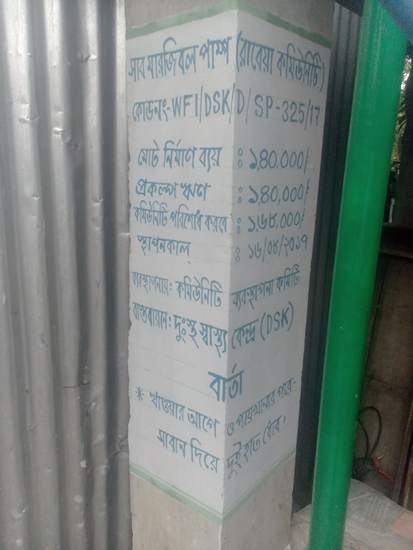 সাব মারজিবল পাম্প (রাবেয়া কমিউনিটি)
কোডনং-WFI/DSK/D/SP-325/17
মোট নির্মাণ ব্যয় : ১৪০,০০০/
প্রকল্প ঋণ : ১৪০,০০০/
কমিউনিটি পরিশোধ করবে : ১৬৮,০০০/
স্থাপনকাল : ১৬/০৪/২০১৭
ব্যবস্থাপনায়: কমিউনিটি ব্যবস্থাপনা কমিটি
বাস্তবায়ন: দুঃস্থ স্বাস্থ্য কেন্দ্র (DSK)
বার্তা
* খাওয়ার আগে ও পায়খানার পরে-
সাবান দিয়ে দুই হাত ধোব।